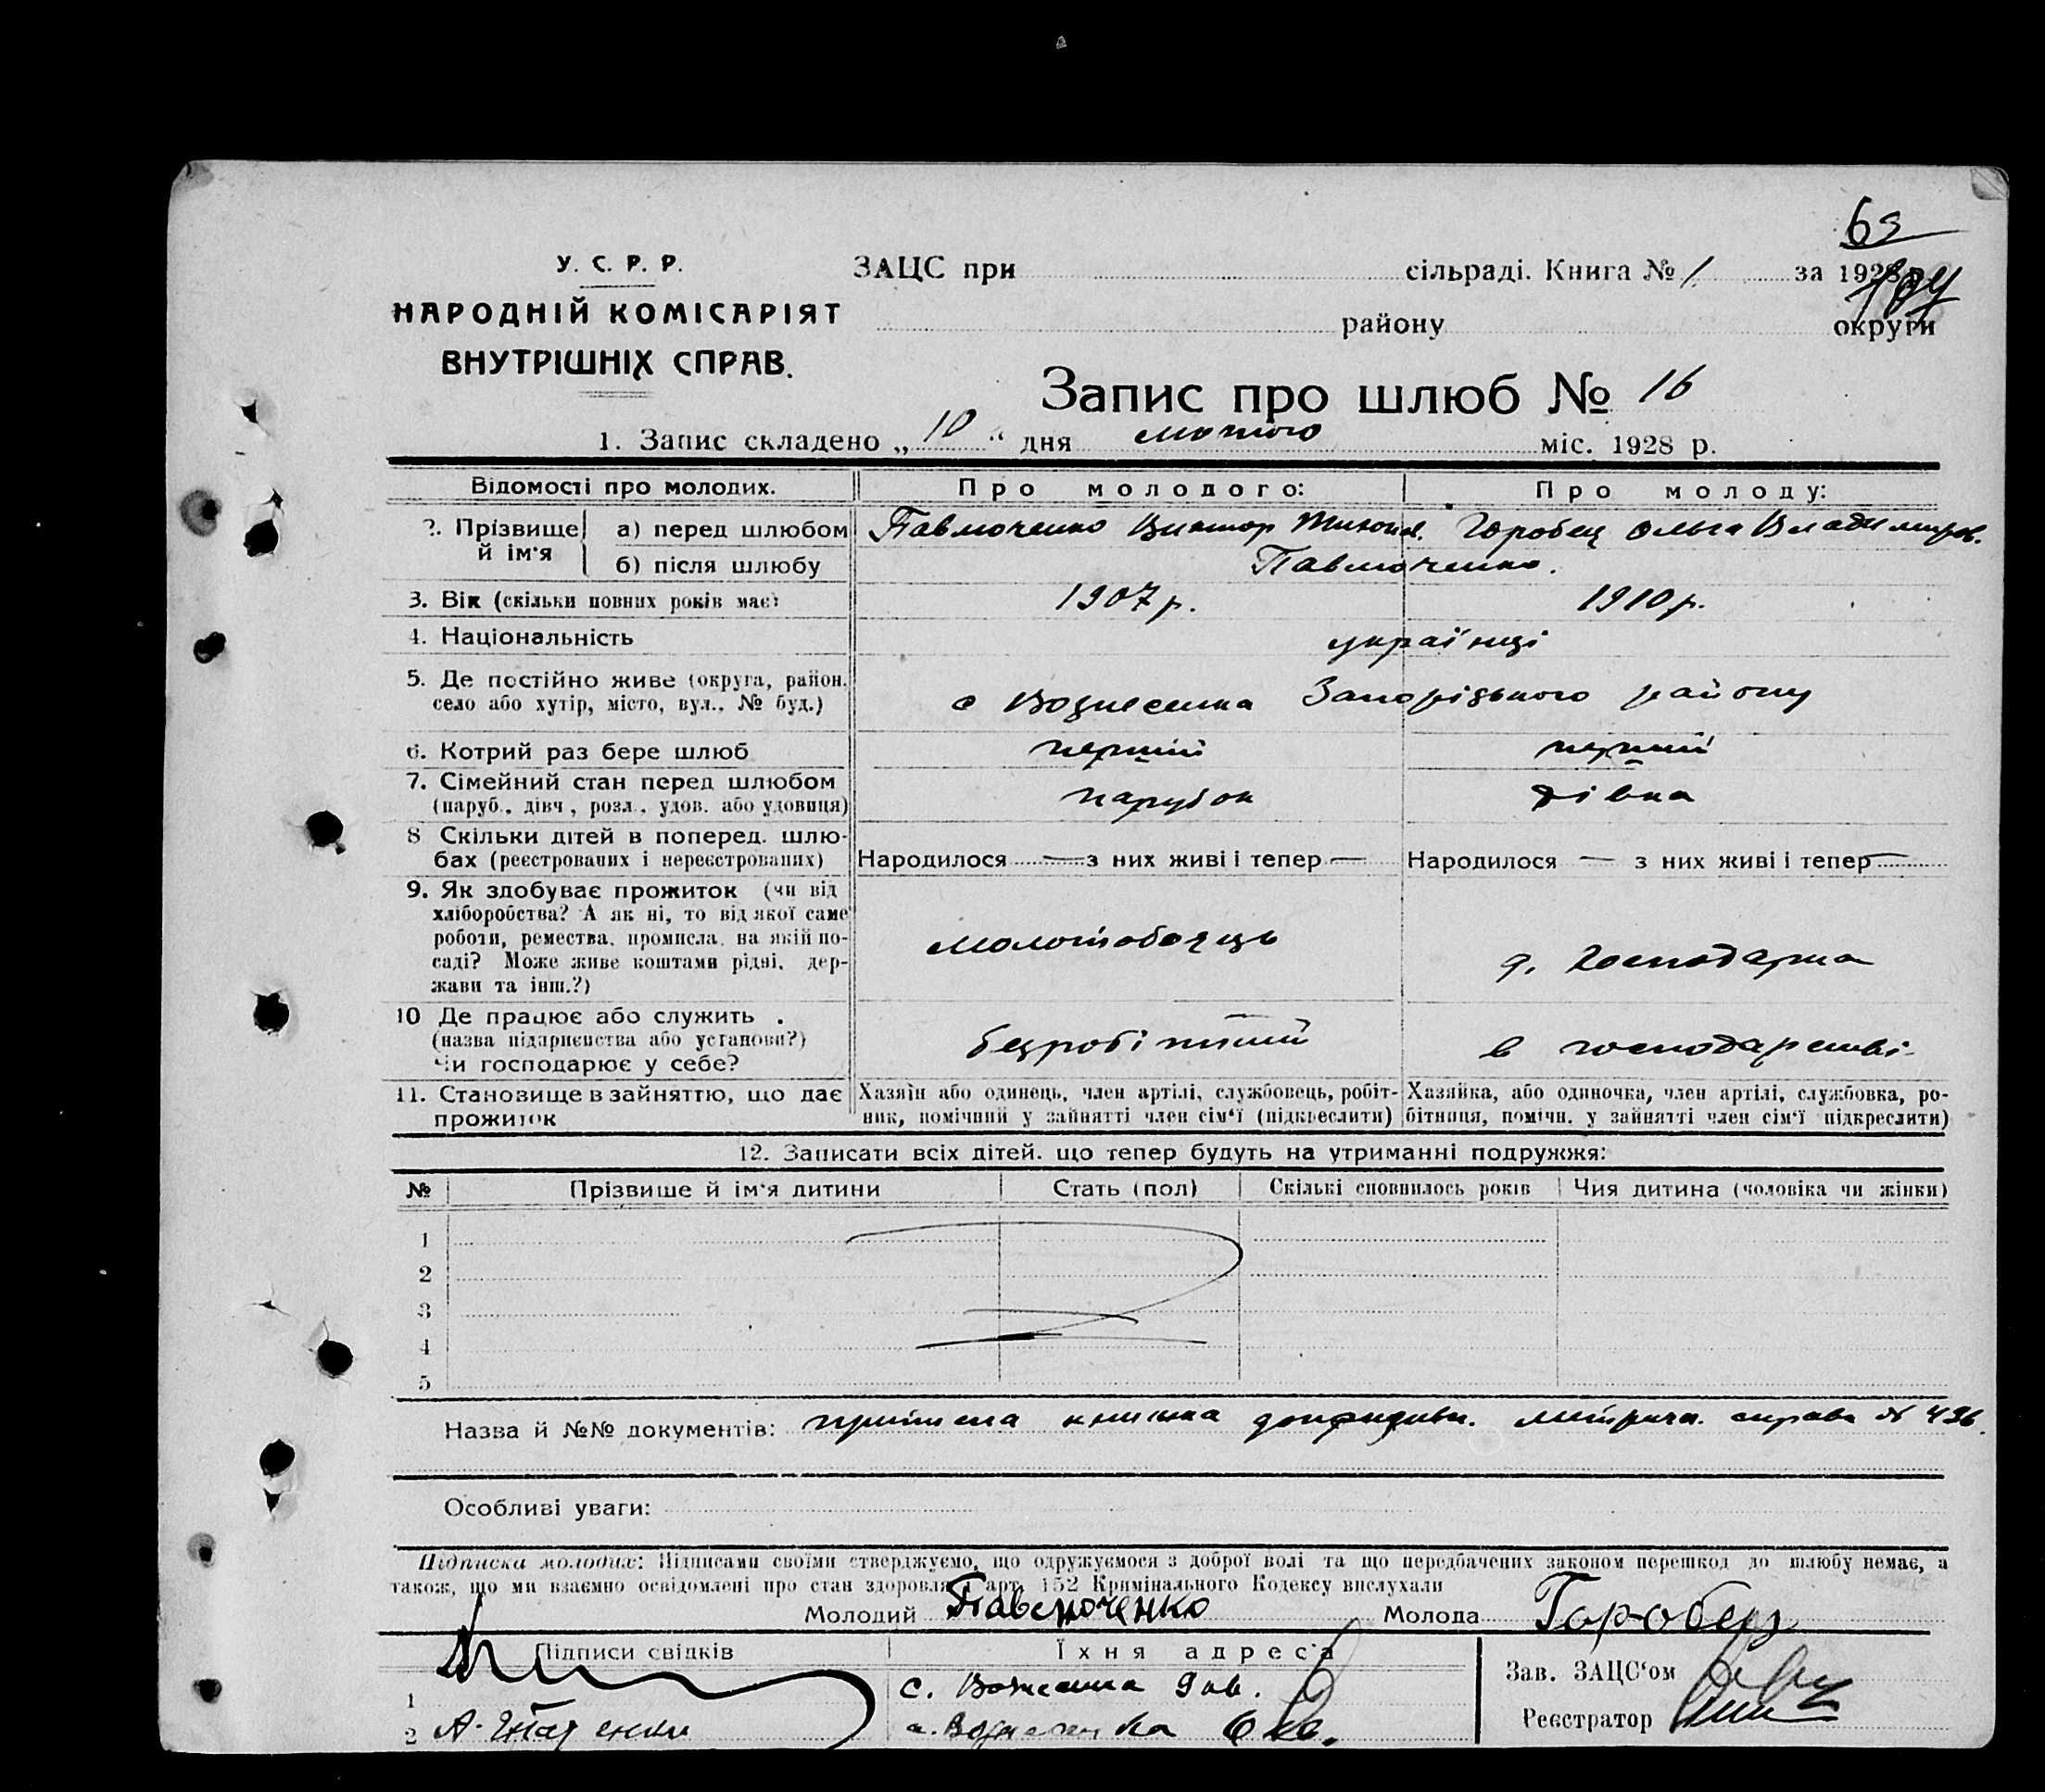 63
У. С. Р. Р.
НАРОДНІЙ КОМІСАРІЯТ
ВНУТРІШНІХ СПРАВ.
ЗАЦС при сільраді. Книга № 1 за 1928 р.
району округи
Запис про шлюб № 16
1. Запис складено „10“ дня лютого міс. 1928 р.
Відомості про молодих. Про молодого: Про молоду:
2. Прізвище й ім'я а) перед шлюбом Павлюченко Виктор Тихон. Горобец Ольга Владимиров.
б) після шлюбу Павлюченко.
3. Вік (скільки повних років має) 1907 р. 1910 р.
4. Національність українці
5. Де постійно живе (округа, район,
село або хутір, місто, вул., № буд.) с Вознесенка Запорізького району
6. Котрий раз бере шлюб перший перший
7. Сімейний стан перед шлюбом
(паруб., дівч., розл., удов. або удовиця) парубок дівка
8 Скільки дітей в поперед. шлю-
бах (реєстрованих і нереєстрованих) Народилося — з них живі і тепер — Народилося — з них живі і тепер —
9. Як здобуває прожиток (чи від
хліборобства? А як ні, то від якої саме
роботи, ремества, промисла, на якій по-
саді? Може живе коштами рідні, дер-
жави та інш.?)
молотобоєць
д. господарка
10 Де працює або служить
(назва підприємства або установи?)
Чи господарює у себе?
безробітний в господарстві
11. Становище в зайняттю, що дає
прожиток
Хазяїн або одинець, член артілі, службовець, робіт-
ник, помічний у зайнятті член сім'ї (підкреслити)
Хазяйка, або одиночка, член артілі, службовка, ро-
бітниця, помічн. у зайнятті член сім'ї підкреслити)
12. Записати всіх дітей. що тепер будуть на утриманні подружжя:
№ Прізвище й ім'я дитини Стать (пол) Скількі сповнилось років Чия дитина (чоловіка чи жінки)
1
2
3
4
5
Назва й №№ документів: книжка справа № 496
Особливі уваги:
Підписка молодих: Підписами своїми стверджуємо, що одружуємося з доброї волі та що передбачених законом перешкод до шлюбу немає, а
також, що ми взаємно освідомлені про стан здоровля і арт. 152 Кримінального Кодексу вислухали
Молодий Павлюченко Молода Горобец
Підписи свідків Їхня адреса
1 с. Вознесенка
2 с. Вознесенка 6 кв.
Зав. ЗАЦС'ом
Реєстратор